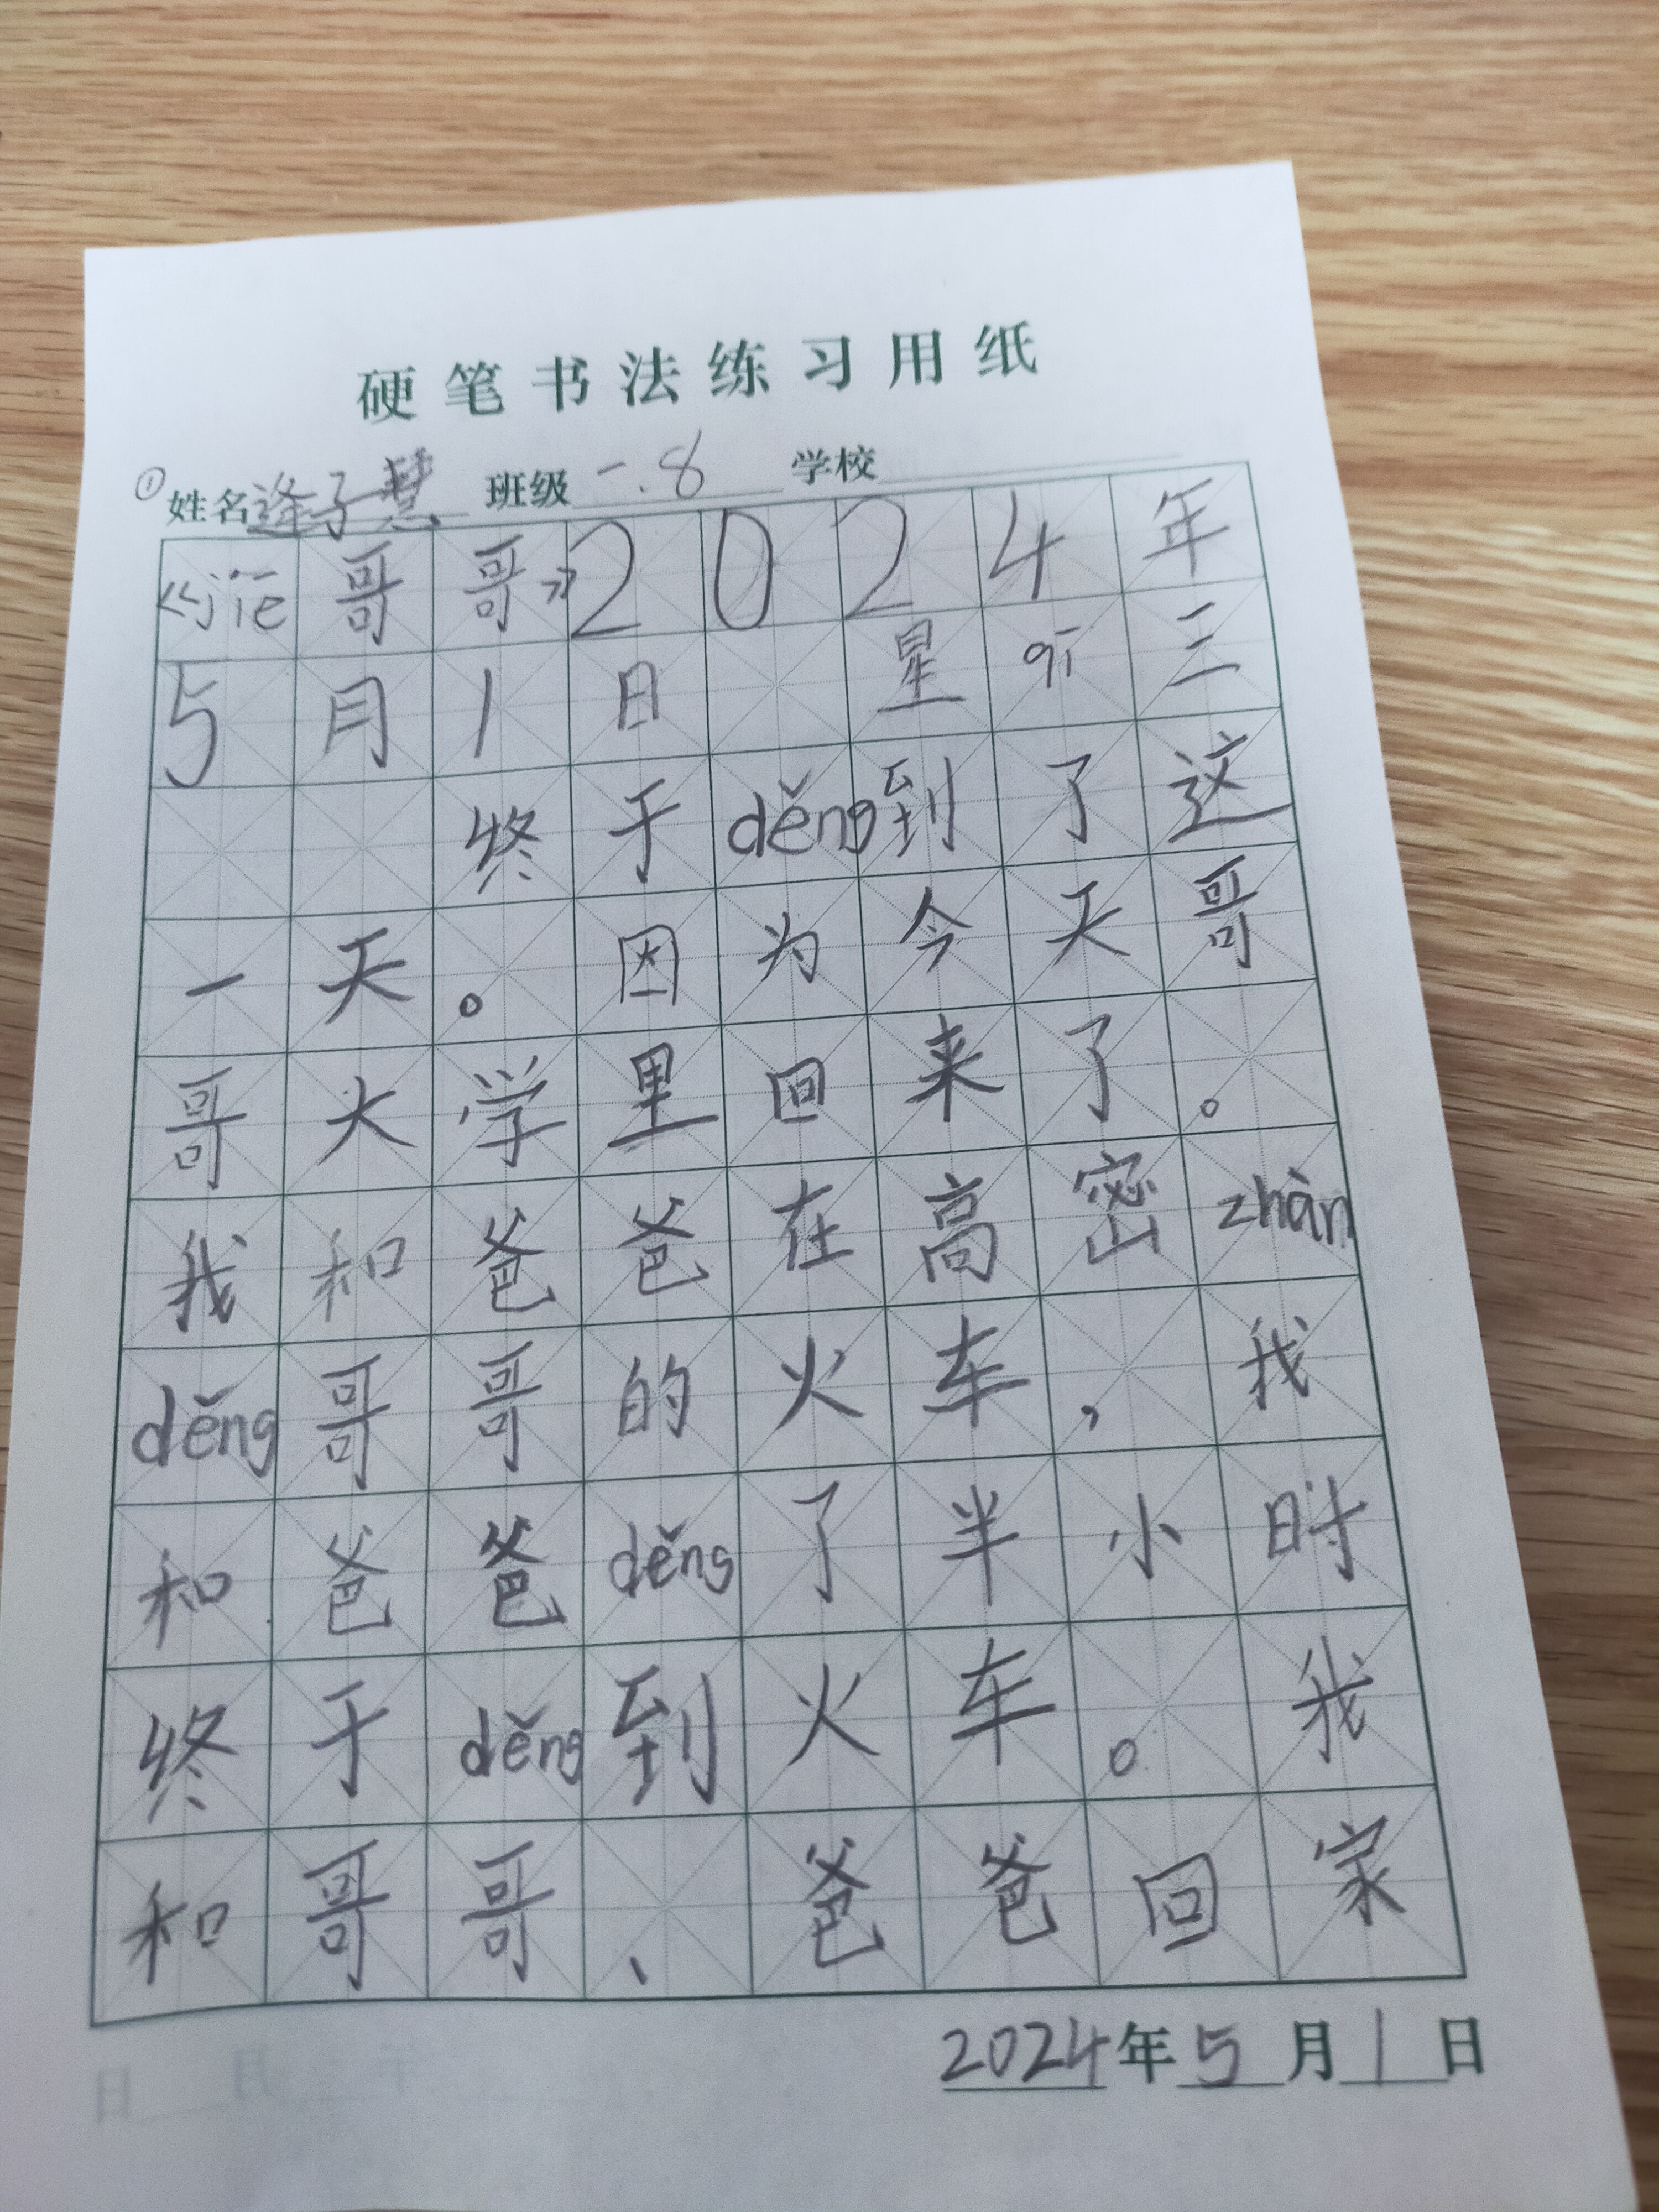 硬笔书法练习用纸
① 姓名逄子慧 班级一.8 学校
《jiē哥哥》2024年
5月1日 星qī三
终于děng到了这
一天。因为今天哥
哥大学里回来了。
我和爸爸在高密zhàn
děng哥哥的火车,我
和爸爸děng了半小时
终于děng到火车。我
和哥哥、爸爸回家
2024年5月1日